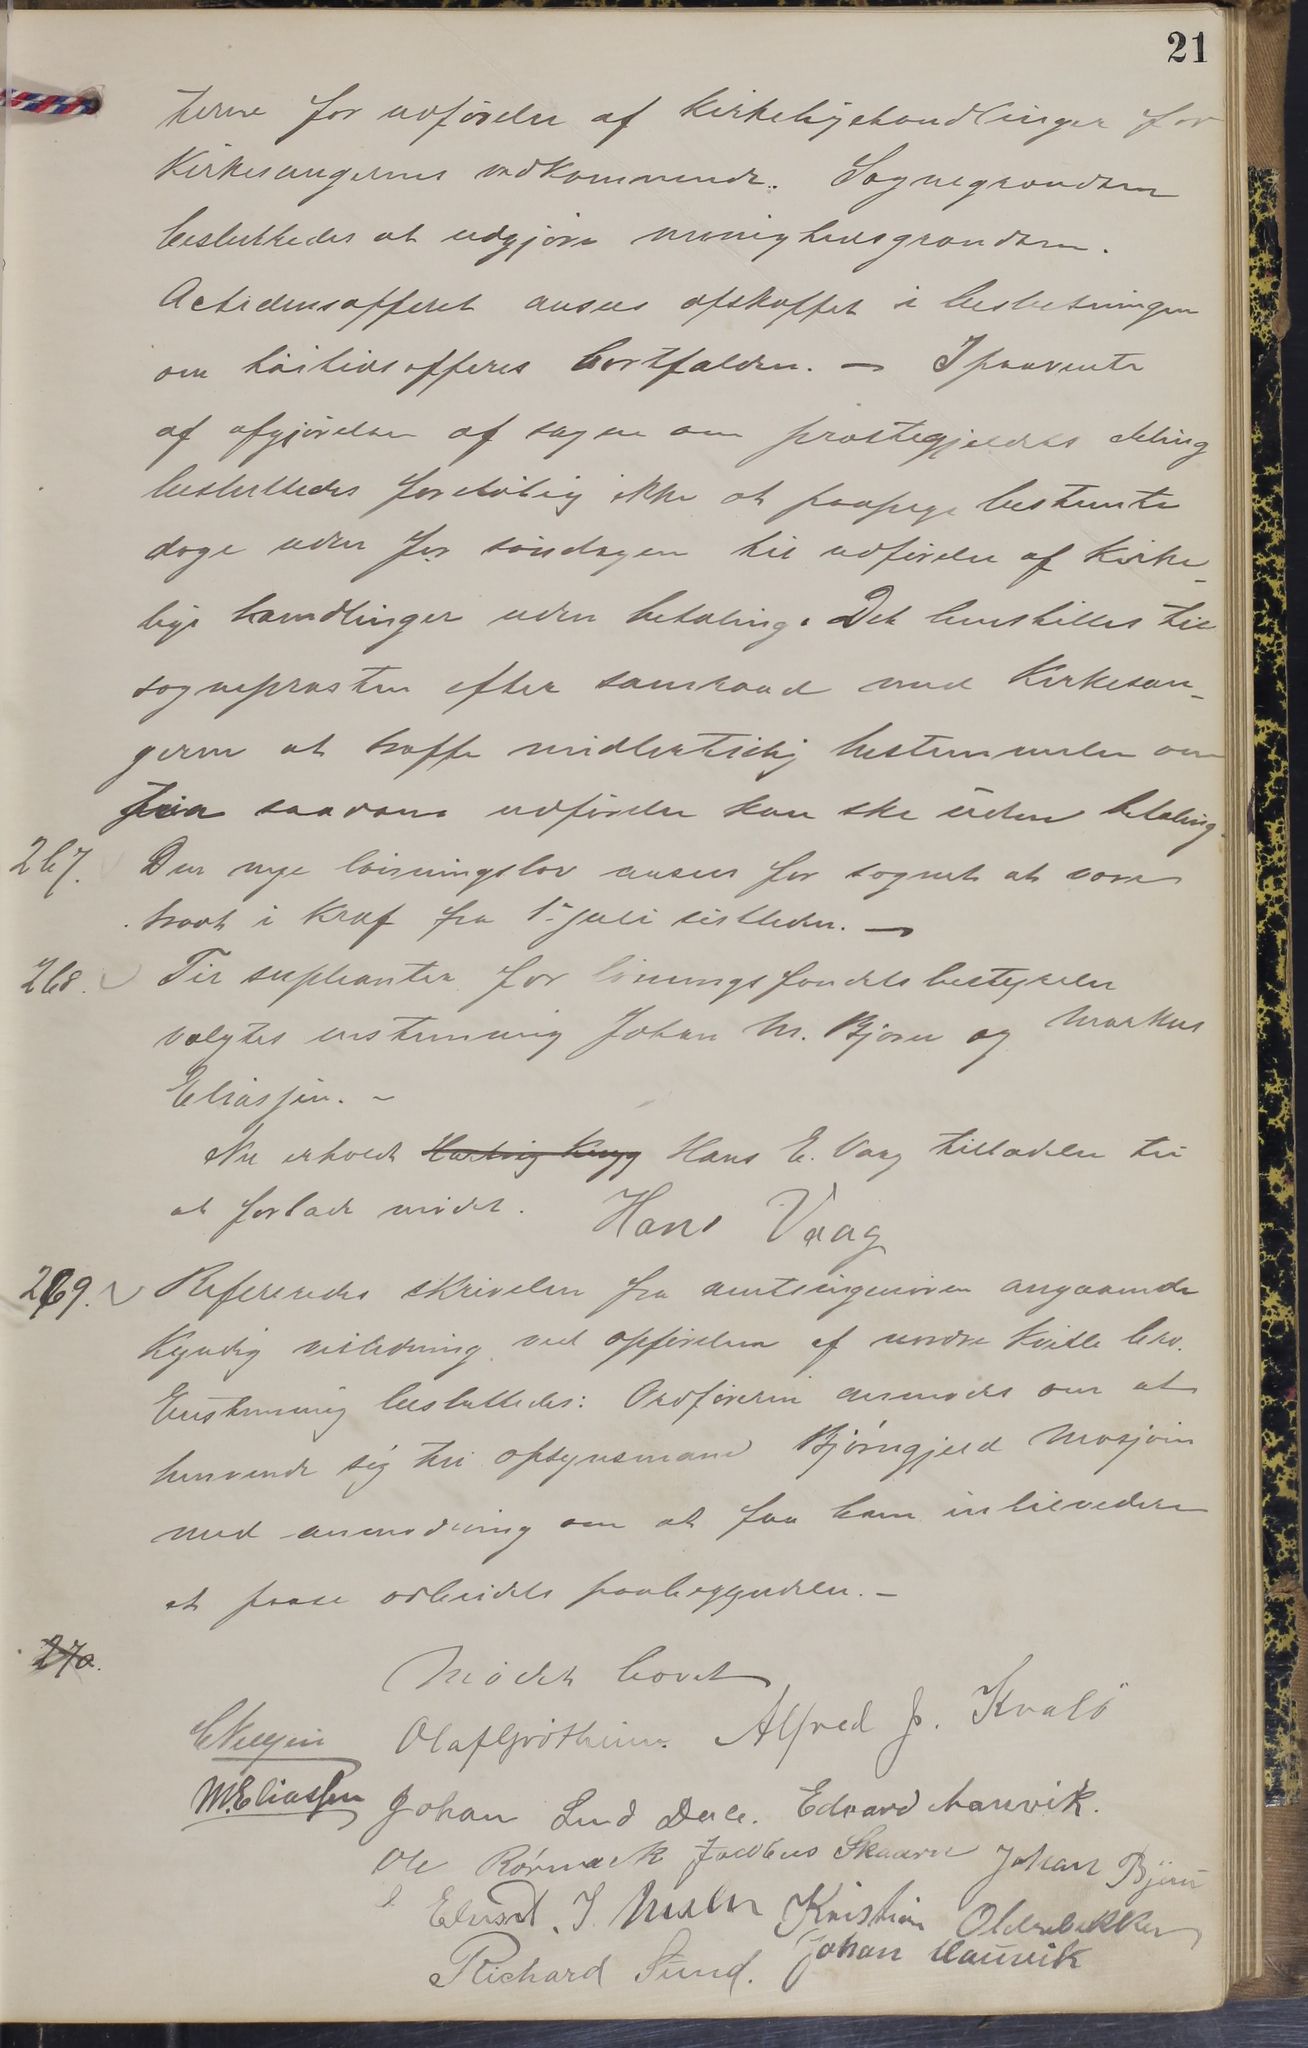 21
terne for udførelse af kirkelige handlinger for
Kirkesangernes vedkommende. Sognegrændsen
besluttedes at udgjøre menighedsgrændsen.
Actidensofferet ansees afskaffet i beslutningen
om høitidsofferes bortfalden. — I paavente
af afgjørelsen af sagen om præstegjeldets deling
besluttedes foreløbig ikke at paapege bestemte
dage uden for søndagen til udførelse af kirke-
lige handlinger uden betaling. Det henstilles til
sognepræsten efter samraad med Kirkesan-
geren at træffe midlertidig bestemmelse om
naar saadan udførelse kan ske uden betaling.
267. Den nye lønningslov ansees for sognet at være
traadt i Kraf fra 1ste juli sistleden. —
268. Til supleanter for lønningsfondets bestyrelse
valgtes enstemmig Johan M. Bjøru og Markus
Eliassen. -
Nu erholdt Hartvig Krygg Hans E. Vaag tilladelse til
at forlade mødet. Hans Vaag
269. Refereredes skrivelse fra amtsingeniøren angaaende
Kyndig veiledning ved opførelsen af nordre Kvitle bro.
Enstemmig besluttedes: Ordføreren anmodes om at
henvende sig til opsynsmand Bjørngjeld Mosjøen
med anmodning om at faa ham til at
at paase arbeidets paabegyndelse. -
270.
Mødet hævet
Olaf Grøtheim. Alfred J. Kvalø
M. Eliassen Johan Lud Dale. Edvard Hanvik.
Ole Rørmark Jacobus Skaarn Johan Bjøru
Elisæus J. Kristian Olderbakken
Richard Sund. Johan Hanvik